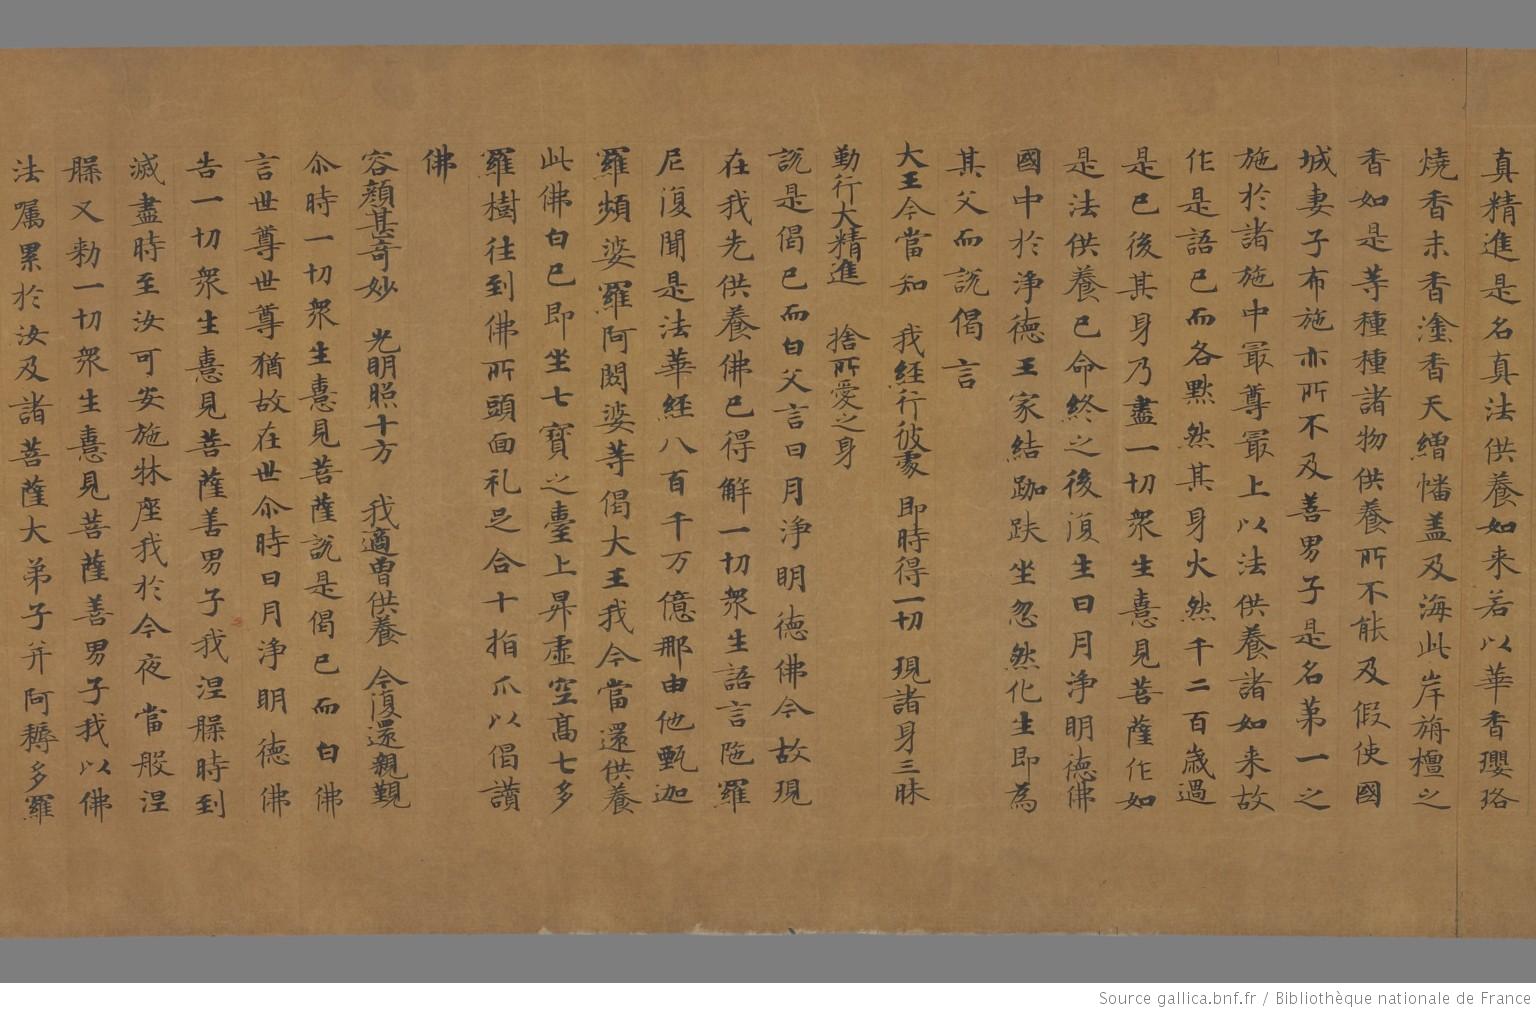 真精進是名真法供養如来若以華香瓔珞
燒香末香塗香天繒幡盖及海此岸旃檀之
香如是等種種諸物供養所不能及假使國
城妻子布施亦所不及善男子是名第一之
施於諸施中冣尊冣上以法供養諸如来故
作是語已而各默然其身火然千二百歲過
是已後其身乃盡一切衆生憙見菩薩作如
是法供養已命終之後復生日月淨明德佛
國中於淨德王家結跏趺坐忽然化生即為
其父而說偈言
大王今當知 我經行彼處 即時得一切 現諸身三昧
勤行大精進 捨所愛之身
說是偈已而白父言日月淨明德佛今故現
在我先供養佛已得解一切衆生語言陁羅
尼復聞是法華經八百千万億那由他甄迦
羅頻婆羅阿閦婆等偈大王我今當還供養
此佛白已即坐七寶之臺上昇虛空高七多
羅樹往到佛所頭面礼足合十指爪以偈讚
佛
容顏甚奇妙 光明照十方 我適曾供養 今復還親覲
尒時一切衆生憙見菩薩說是偈已而白佛
言世尊世尊猶故在世尒時日月淨明德佛
告一切衆生憙見菩薩善男子我涅槃時到
滅盡時至汝可安施牀座我於今夜當般涅
槃又勑一切衆生憙見菩薩善男子我以佛
法嘱累於汝及諸菩薩大弟子并阿耨多羅
Source gallica.bnf.fr / Bibliothèque nationale de France